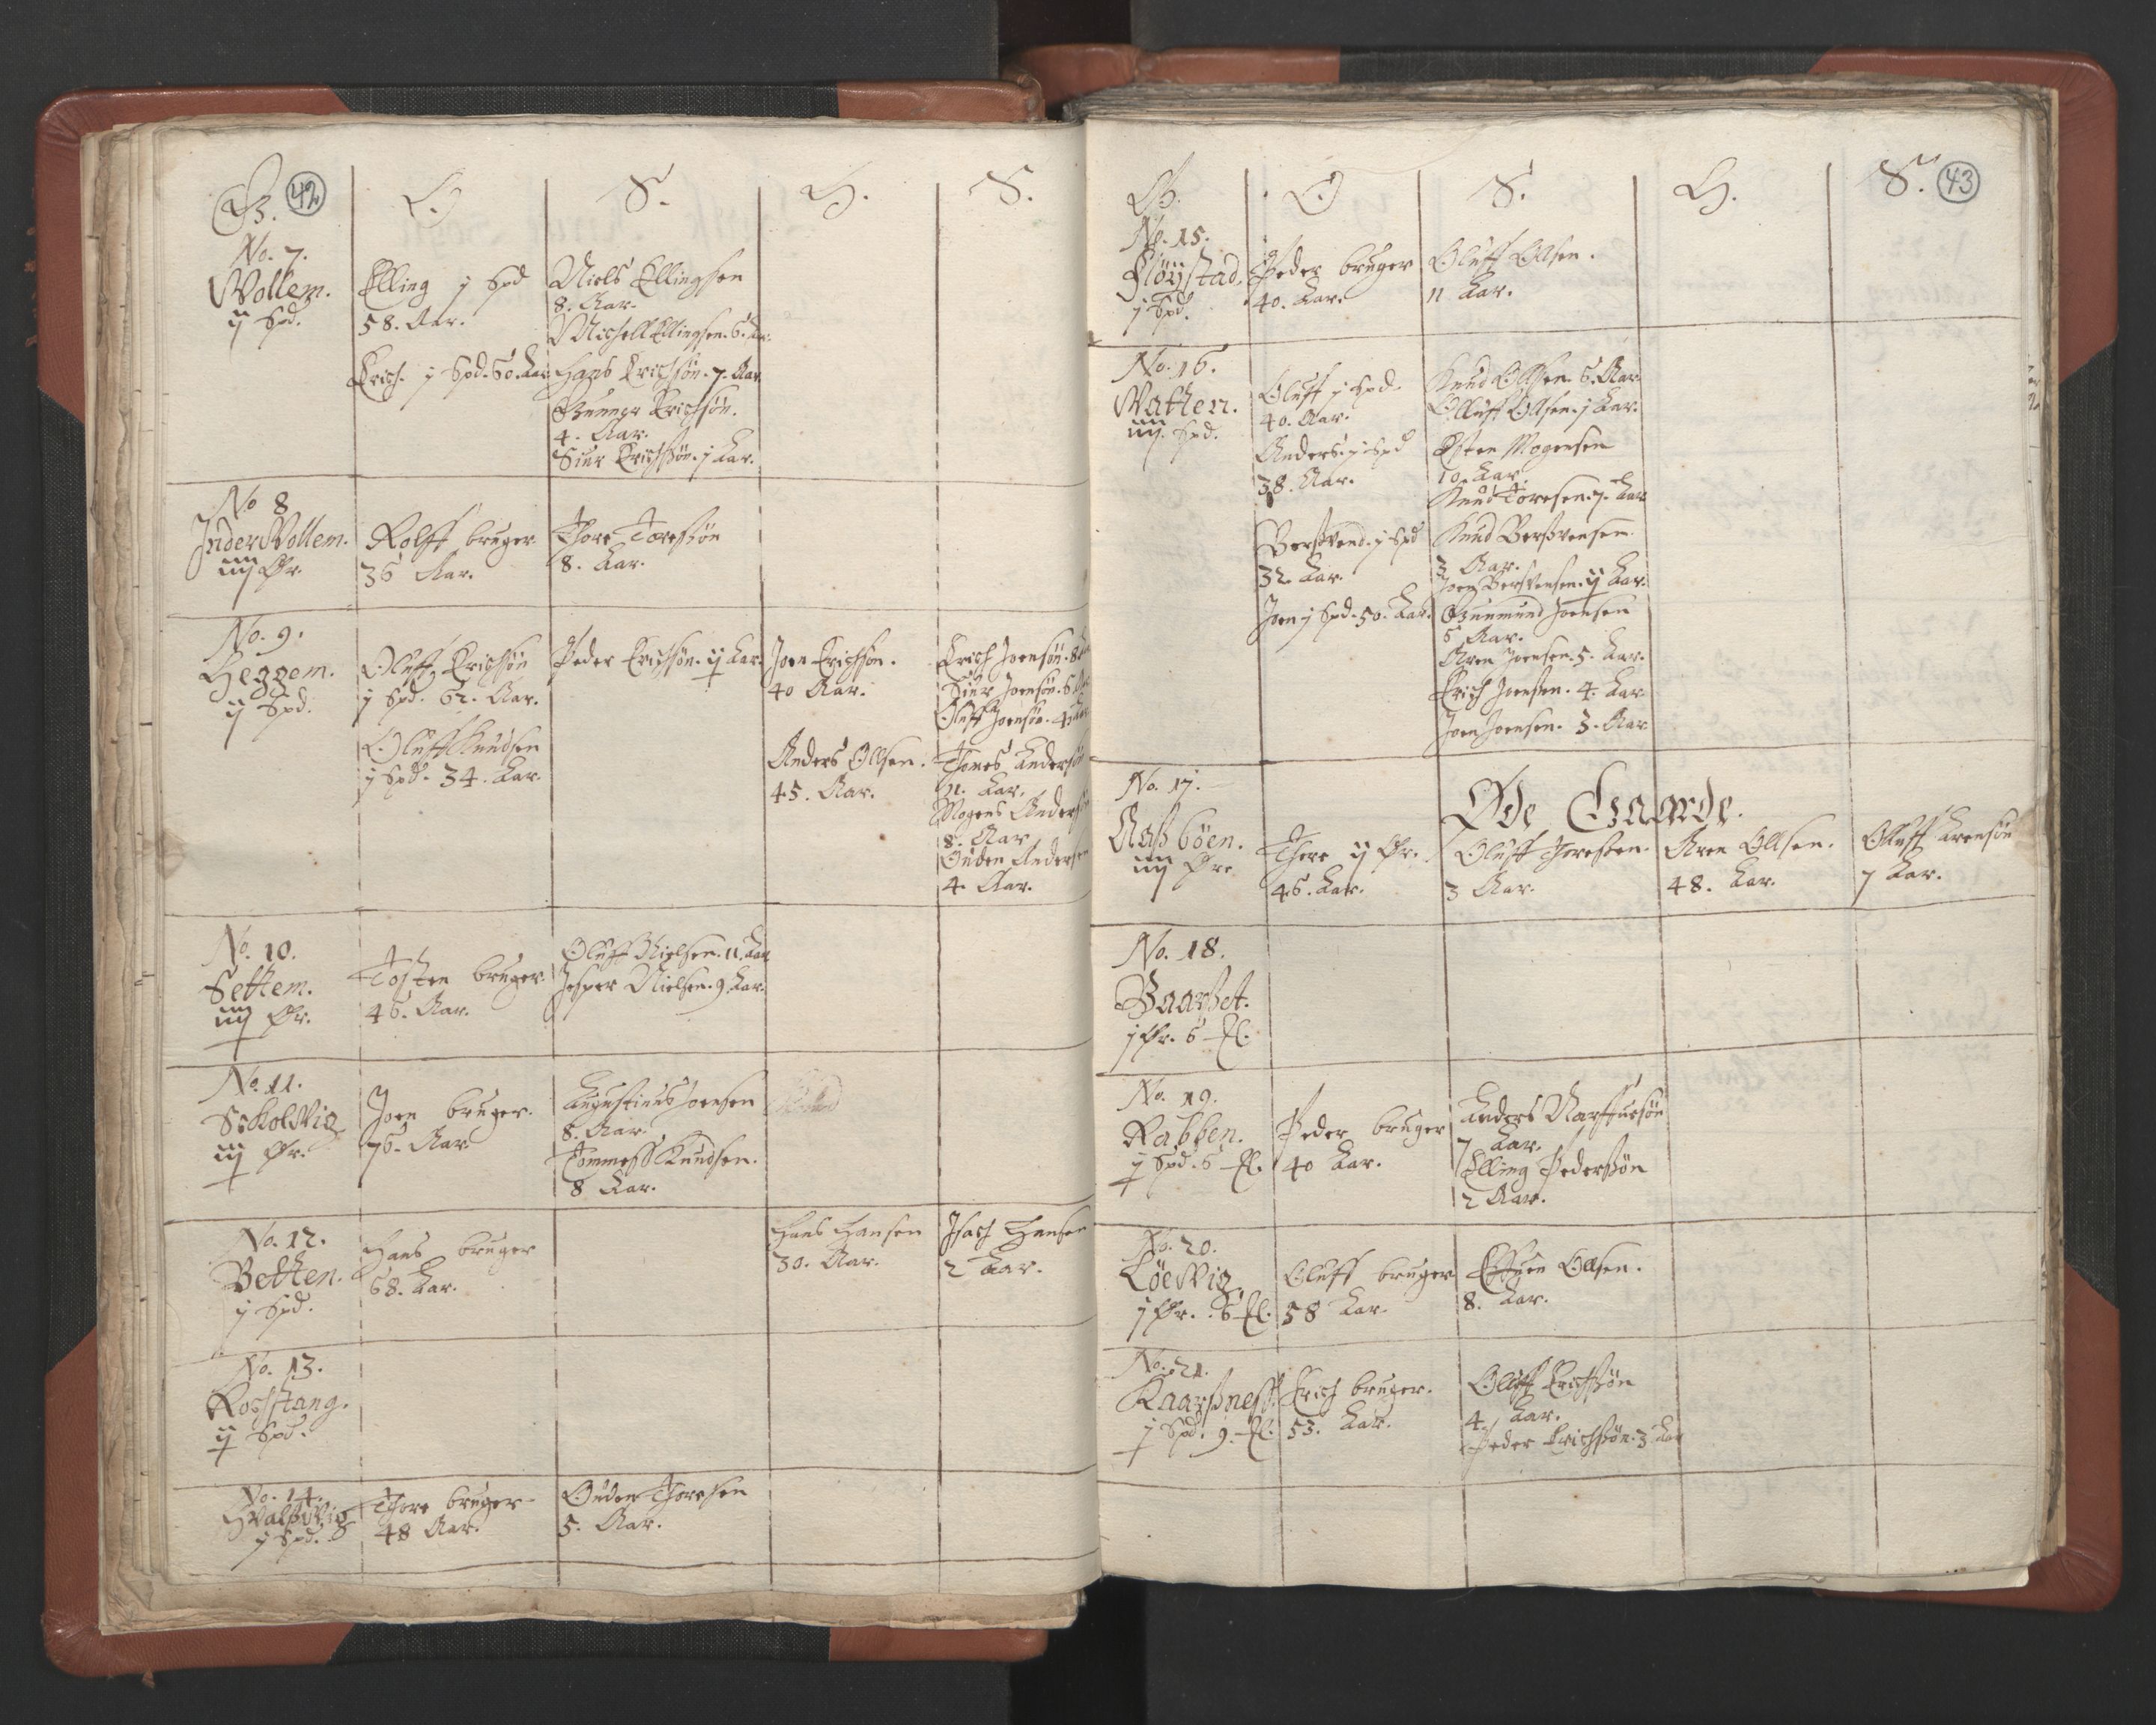 G. 42 O S. H. S.
No. 7.
Wollem.
ij Spd.
Elling j Spd
58. Aar.
Erich. j Spd. 60. Aar
Niels Ellingsen
8. Aar.
Michell Ellingsen. 6. Aar.
Hans Erichsøn. 7. Aar
Gunner Erichsøn.
4. Aar.
Siur Erichsøn. j Aar.
No 8
Inder Wollem.
iiij Ør.
Rolff bruger
36 Aar.
Thore Toresøn
8. Aar.
No. 9.
Heggem.
ij Spd.
Oluff Erichsøn
j Spd. 62. Aar.
Oluff Knudsen
j Spd. 34. Aar.
Peder Erichsøn. ij Aar.
Joen Erichsøn.
40 Aar.
Anders Ollsen.
45. Aar.
Erich Joensøn. 8
Siur Joensøn. 6
Oluff Joensøn. 4
Thomes Andersøn
11. Aar.
Mogens Anders
8. Aar
Ouden Andersen
4. Aar.
No. 10.
Settem.
iiij Ør.
Tosten bruger.
46. Aar.
Oluff Nielsen. 11. Aar
Jesper Nielsen. 9. Aar.
No. 11.
Schol Wig
iij Ør.
Joen bruger.
76. Aar
Augustinus Joensen
8. Aar.
Tommess Knudsen.
8 Aar.
No. 12.
Betten.
j Spd.
Hans bruger
68. Aar.
Hans Hansen
30. Aar.
Isach Hansen
2 Aar.
No. 13.
Rosstang.
ij Spd.
No. 14.
Hvalß Wig
j Spd.
Thore bruger
48 Aar.
Ouden Thoresen
5. Aar.
G. O S. H. S. 43
No. 15.
Fløystad.
j Spd.
Peder bruger
40. Aar.
Oluff Ollsen.
11 Aar.
No. 16.
Watten.
iiij. Spd.
Oluff j Spd.
40. Aar.
Anders. j Spd
38. Aar.
Berßvend. j Spd
32. Aar.
Joen j Spd. 50. Aar.
Knud Ollsen. 6. Aar
Olluff Ollsen. j Aar.
Østen Mogensen
10. Aar.
Knud Toresen. 7. Aar
Knud Berßvensen.
3 Aar.
Joen Berßvensen. ij Aar.
Gunmund Joensen
6 Aar.
Aren Joensen. 5. Aar.
Erich Joensen. 4. Aar
Joen Joensen. 3. Aar
Øde Gaarde.
No. 17.
Aaßbøen.
iiij Øre
Thore ij Ør.
46. Aar.
Oluff Thoresen.
3 Aar.
Aren Ollsen.
48. Aar.
Olluff Arensøn
7 Aar.
No. 18.
Baarßet.
j Ør. 6
No. 19.
Rabben.
j Spd. 6
Peder bruger
40 Aar.
Anders Narffuesøn
7 Aar.
Elling Pedersøn
2 Aar.
No. 20.
Løe Wig.
j Ør. 6
Oluff bruger
58 Aar.
Effuen Ollsen.
8. Aar.
No. 21.
Kaarßness.
j Spd. 9.
Erich bruger.
53. Aar.
Oluff Erichsøn
4. Aar.
Peder Erichsøn. 3. Aar